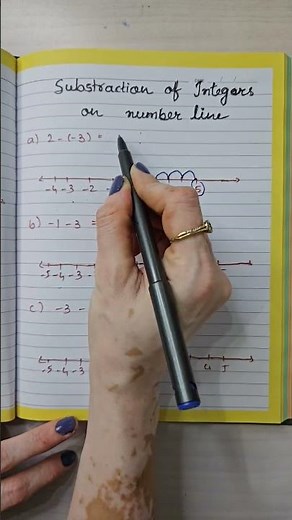 Substraction of Integers
on number line
a) 2 - (-3) =
-4 -3 -2 5
b) -1 - 3 =
-5 -4 -3
c) -3 -
-5 -4 -3 4 5